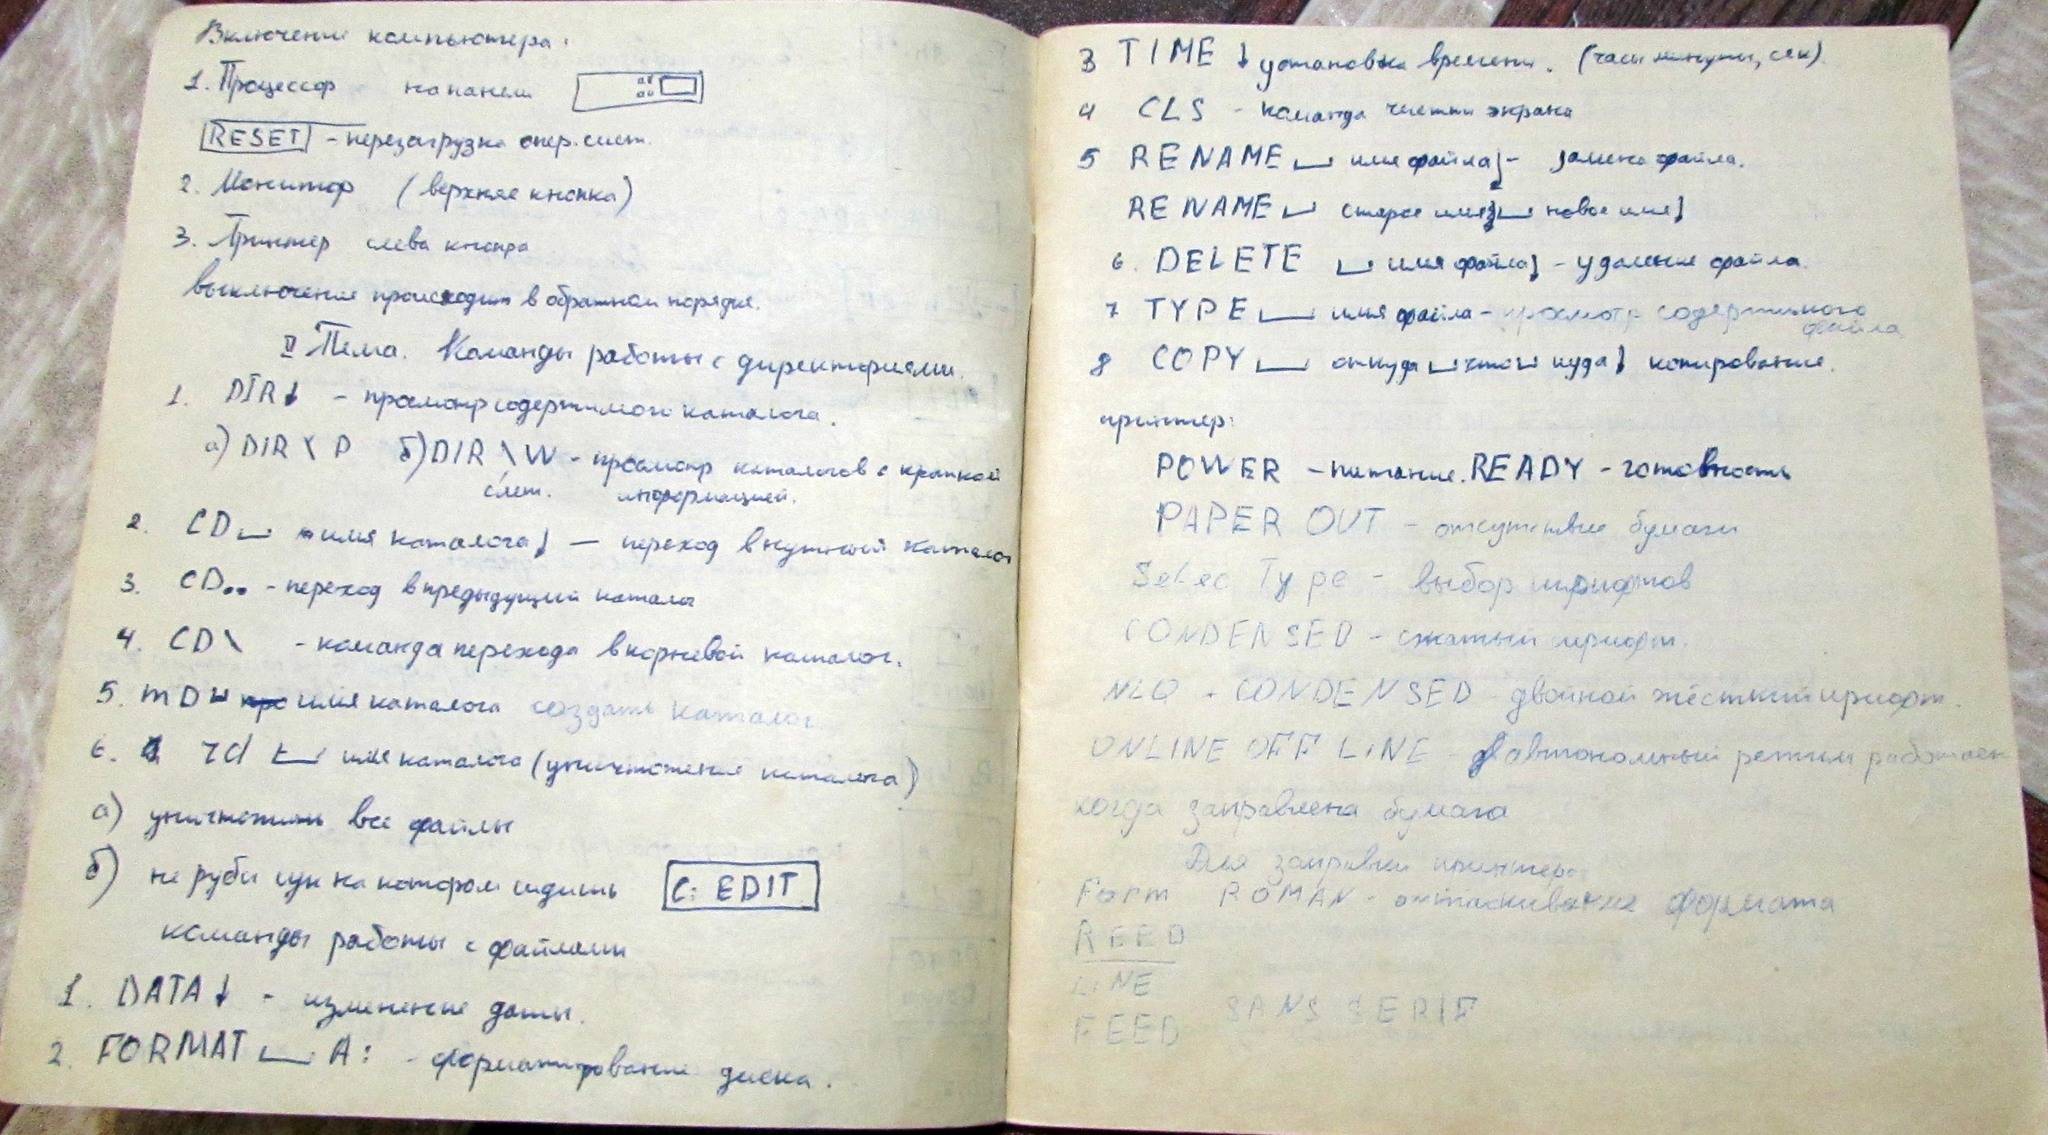 Включение компьютера:
1. Процессор на панели
RESET - перезагрузка опер. сист.
2. Монитор (верхняе кнопка)
3. Принтер слева кнопка
выключение происходит в обратном порядке.
II Тема. Команды работы с директориями.
1. DIR↓ - просмотр содержимого каталога.
а) DIR \ P б) DIR \ W - просмотр каталогов с краткой
информацией.
2. CD␣ имя каталога↓ — переход в нужный каталог
3. CD.. - переход в предыдущий каталог
4. CD\ - команда перехода в корневой каталог.
5. mD␣ имя каталога создать каталог
6. rd ␣ имя каталога (уничтожение каталога)
а) уничтожить все файлы
б) не руби сук на котором сидишь C: EDIT
команды работы с файлами
1. DATA↓ - изменение даты.
2. FORMAT ␣ A: - форматирование диска.
3 TIME ↓ установка времени. (часы минуты, сек).
4 CLS - команда чистки экрана
5 RENAME ␣ имя файла↓ - замена файла.
RENAME ␣ старое имя ␣ новое имя↓
6. DELETE ␣ имя файла↓ - удаление файла.
7 TYPE ␣ имя файла - просмотр содержимого
файла
8 COPY ␣ откуда ␣ что ␣ куда↓ копирование.
принтер:
POWER - питание. READY - готовность
PAPER OUT - отсутствие бумаги
Selec Type - выбор шрифтов
CONDENSED - сжатый шрифт.
NLQ - CONDENSED - двойной жёсткий шрифт.
ONLINE OFF LiNE - автономный режим работает
когда заправлена бумага
Для заправки принтера
Form ROMAN - оттаскивание формата
REED
LiNE
FEED SANS SERIF